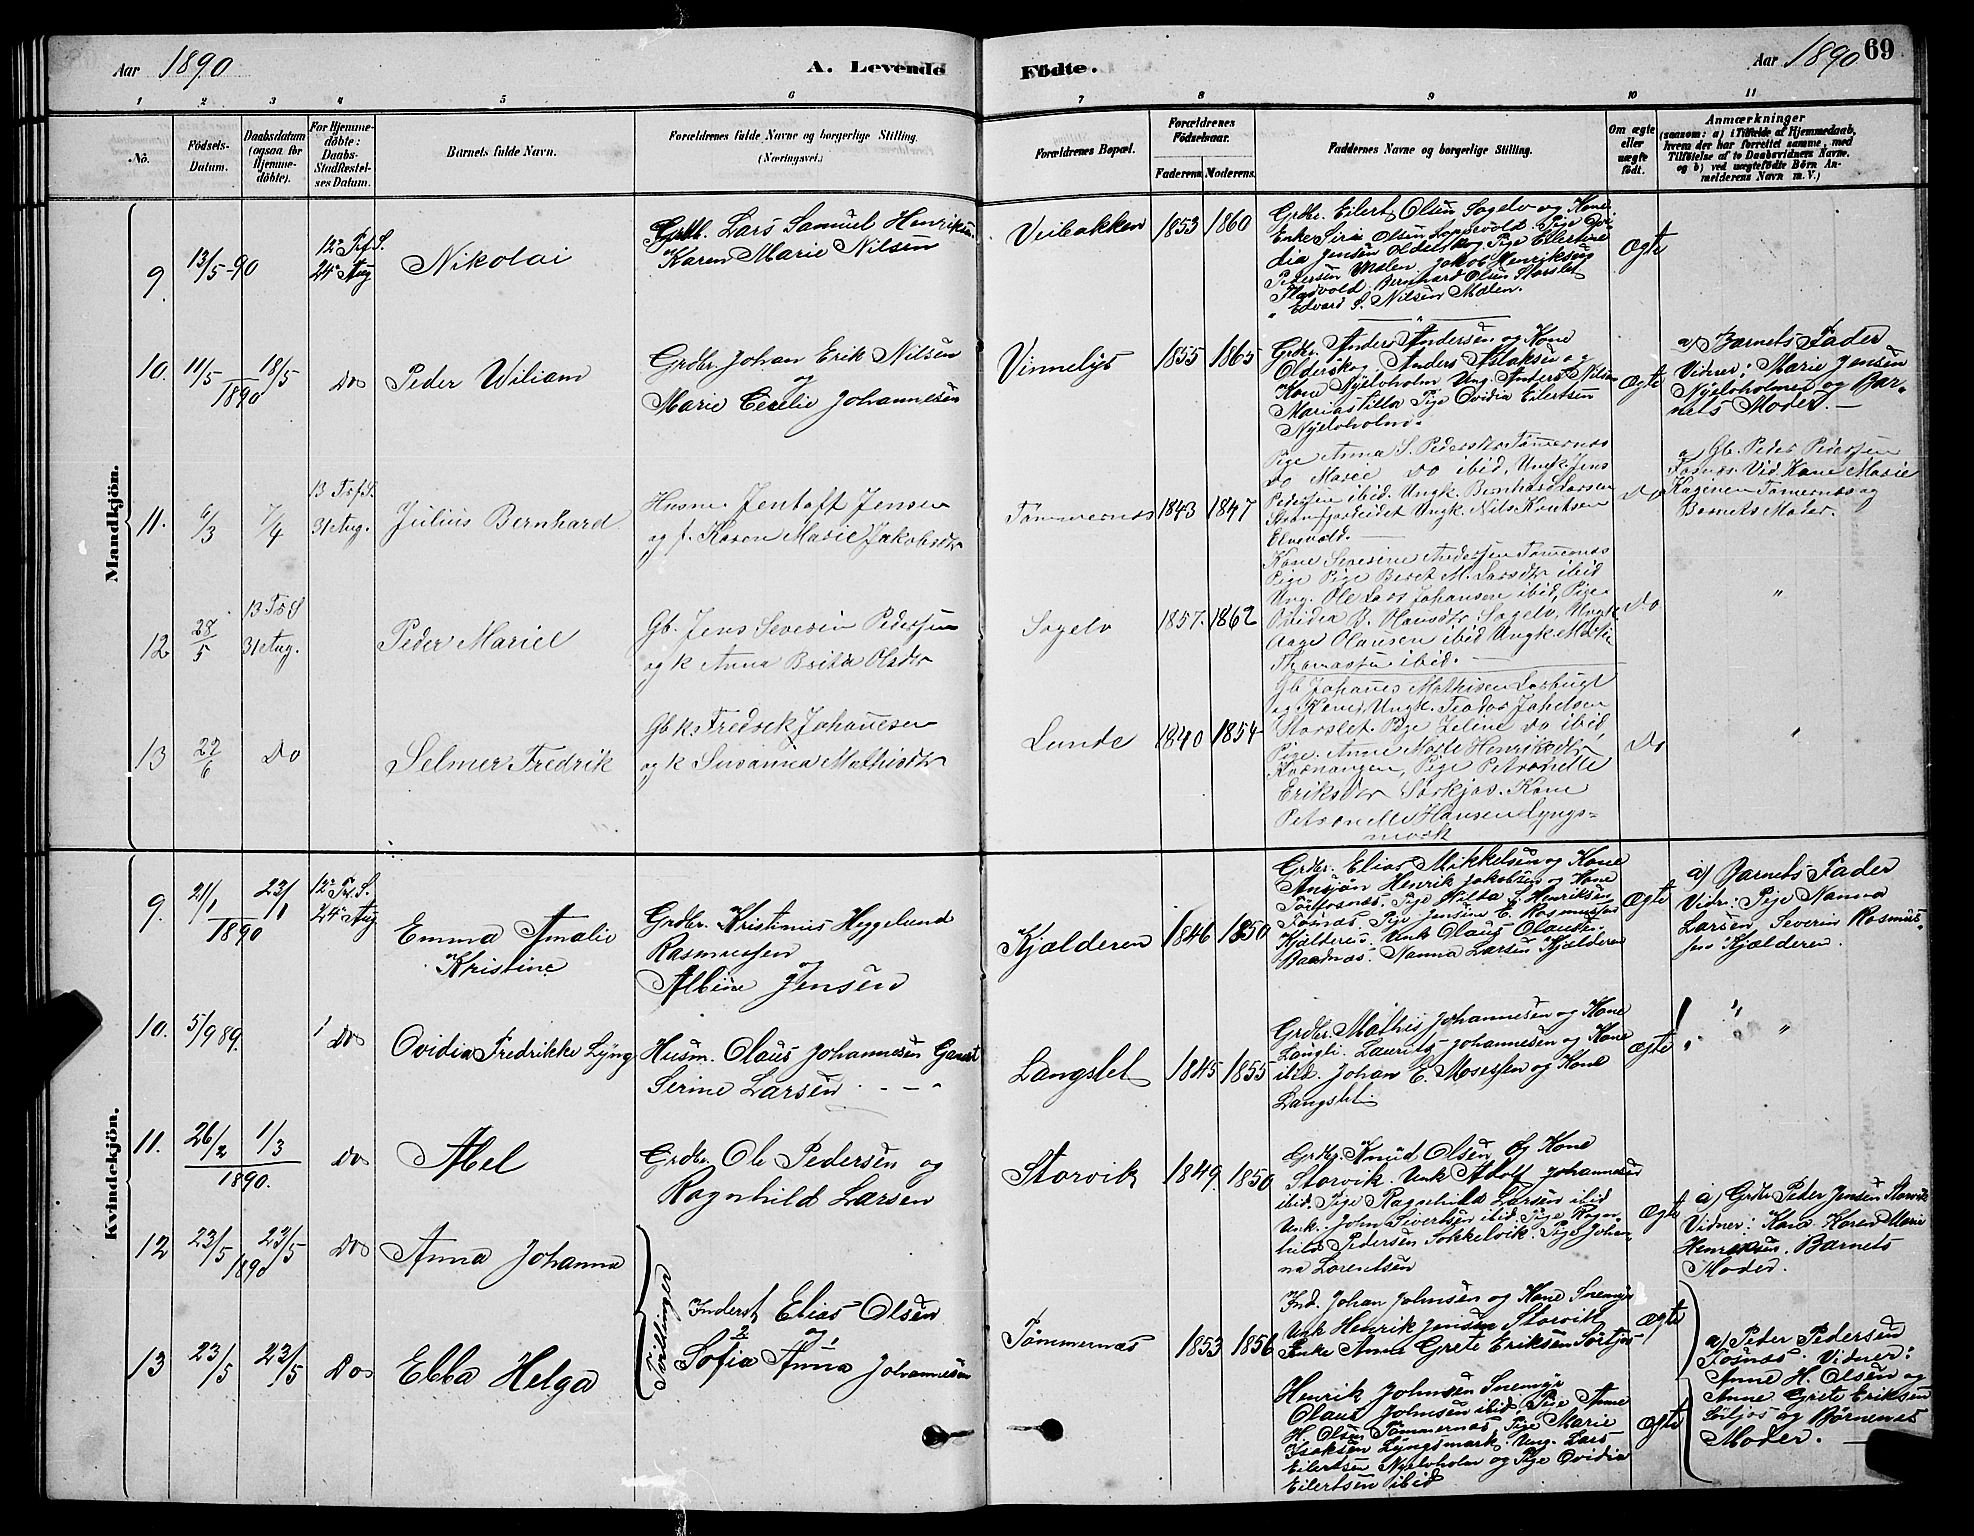 Aar 1890
A. Levende
Födte.
Aar 1890 69
1 2 3 4 5 6 7 8 9 10 11
No.
Födsels-
Datum.
Daabsdatum
(ogsaa for
Hjemme-
döbte).
For Hjemme-
döbte:
Daabs-
Stadfæstel-
ses Datum.
Barnets fulde Navn.
Forældrenes fulde Navne og borgerlige Stilling.
(Næringsvei.)
Forældrenes Bopæl.
Forældrenes
Födselsaar.
Faderens
Moderens.
Faddernes Navne og borgerlige Stilling.
Om ægte
eller
uægte
födt.
Anmærkninger
(saasom: a) i Tilfælde af Hjemmedaab,
hvem der har forrettet samme, med
Tilföielse af to Daabsvidners Navne.
og b) ved uægtefödte Börn An-
melderens Navn m. V.)
Mandkjön.
9
13/5-90
24de Aug
Nikolai
Lars Samuel Henriksen
Karen Marie Nilsen
Veibakken
1853
1860
Grdbr. Eilert Olsen Sogelv og Kone
Enke Siri Olsen
dia Jensen Oldersko, Pige Eilertine
Pedersen Molen Jakob Henriksen
Fladvold. Bernhard Olsen Storslet
" Edvard S. Nilsen Molen.
Ægte
10.
11/5
18/5
1890
Do
Peder Wiliam
Grdbr. Johan Erik Nilsen
og
Marie Cecelie Johannesen
Vinnelys
1855
1865
Grdbr. Anders Andersen og Kone
Oldersko, Anders Aslaksen og
Kone Nyelvholm Ung. Anders Nilsen
Pige Ovidia Eilertsen
Nyelvholm.
Ægte
a) Barnets Fader
Vidner: Marie Jensen
Nyelvholmen og Bar-
nets Moder. —
11.
6/3
7/4
31 Aug.
Julius Bernhard
Husm. Jentoft Jensen
og f. Karen Marie Jakobsdtr
Tömmernæs
1843
1847
Pige Anna S. Pedersdtr Tömernæs
Do Marie Do ibid, Ungk. Jens
Pedersen ibid. Ungk. Bernhard Larsen
Ungk. Nils Knutsen
Elvevold. —
Do
a Gb. Peder Pedersen
Fosnæs. Vid. Kone Marie
Tömernæs og
Barnets Moder.
12
28/5
31 Aug.
Peder Mariel
Gb. Jens Severin Pedersen
og k Anna Brita Olsdtr
Sogelv
1857.
1862
Kone Severine Andersen Tömernæs
Pige Pige Beret M. Larsdtr ibid
Ung. Ole Lars Johansen ibid, Pige
Ovidia B. Hansdtr Sogelv, Ungk
Aage Olausen ibid Ungk.
Thomassen ibid. —
Do
"
13
22/6
Do
Selmer Fredrik
Gbk Fredrik Johansen
og k Susanna Mathisdtr
Lunde
1840
1854
Gb Johanes Mathisen
og Kone, Ungk.
Storslet Pige Jeline Do ibid,
Pige. Anne Marie Henriksdtr
Kvænangen, Pige Petronelle
Eriksdtr Sörkjos. Kone
Petronelle Hansen Lyngs-
mark
Do
"
Kvindekjön.
9.
21/1
23/1
1890
24de Aug
Emma Amalie
Kristine
Grdbr. Kristinus Heggelund
Rasmussen
og
Albine Jensen
Kjælderen
1846
1850
Grdbr. Elias Mikkelsen og Kone
Henrik Jakobsen og Kone
Pige Hilda E. Henriksen
Fosnæs. Pige Jensine E. Rasmussen
Unk Olaus Olausen
Baadnæs. Nanna Larsen Kjælderen
Ægte
a) Barnets Fader
Vidn: Pige Nanna
Larsen Severin Rasmus-
sen Kjælderen.
10.
5/9 89.
Do
Ovidia Fredrikke Lyng
Husm. Olaus Johannesen Gamst
Serine Larsen
Langslet
1845
1855
Grdbr. Mathis Johannesen og Kone
Langli. Laurits Johannesen og Kone
ibid. Johan E. Mosessen og Kone
Langslet
Ægte
"
11.
26/2
1/3
1890.
Do
Abel
Grdbr. Ole Pedersen og
Ragnhild Larsen
Storvik
1849.
1850
Grdbr. Knud Olsen og Kone
Storvik. Unk Adolf Johannesen
ibid. Pige Ragnhilda Larsen ibid
Unk. John Sivertsen ibid. Pige Ragn-
hild Pedersen Sokkelvik. Pige Johan-
na Lorentsen
Ægte
a) Grdbr Peder Jensen Storvik
Vidner: Kone Karen Marie
Henriksen. Barnets
Moder.
12
23/5
23/5
1890
Do
Anna Johanna
Tvillinger
Inderst Elias Olsen
og
Sofia Anna Johannesen
Tömmernæs
1853
1856
Ind. Johan Johnsen og Kone Snemyr
Unk Henrik Jensen Storvik
Enke Anne Grete Eriksen
Ægte
a) Peder Pedersen
Fosnæs. Vidner:
Anne H. Olsen og
Anne Grete Eriksen
og Börnenes
Moder. —
13
23/5
23/5
Do
Ebba Helga
Henrik Johnsen Snemyr
Olaus Johnsen ibid. Pige Anne
H. Olsen Tömmernæs, Pige Marie
Isaksen Lyngsmark. Ung. Lars
Eilertsen Nyelvholm og Pige Ovidia
Eilertsen ibid
Ægte